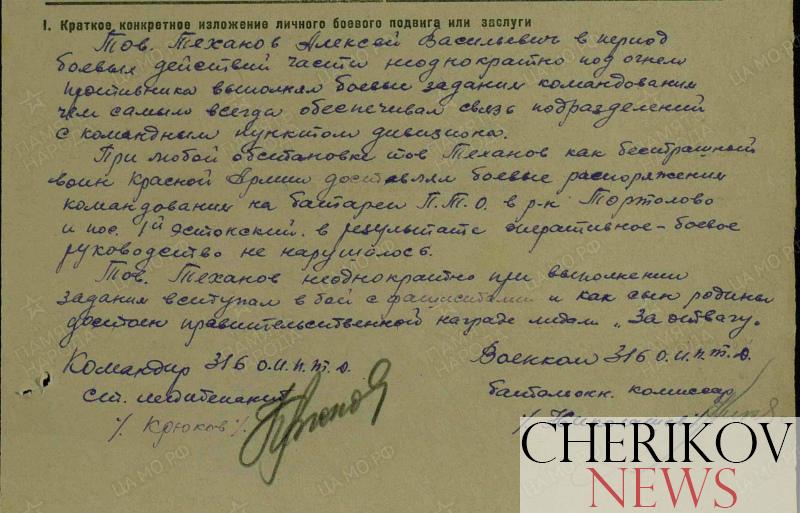 I. Краткое конкретное изложение личного боевого подвига или заслуги
Тов. Теханов Алексей Васильевич в период
боевых действий части неоднократно под огнем
противника выполнял боевые задания командования
чем самым всегда обеспечивал связь подразделений
с командным пунктом дивизиона.
При любой обстановке тов Теханов как бестрашный
воин Красной Армии доставлял боевые распоряжения
командования на батареи П.Т.О. в р-к Тортолово
и пос. 1й Эстонский. в результате оперативное-боевое
руководство не нарушалось.
Тов. Теханов неоднократно при выполнении
задания вступал в бой с фашистами и как сын родины
достоин правительственной награде медали "За отвагу"
Командир 316 о.и.п.т.д.
Военком 316 о.и.п.т.д.
ст. лейтенант
батальонн. комиссар
/. Крюков /.
CHERIKOV
NEWS
ЦАМО.РФ